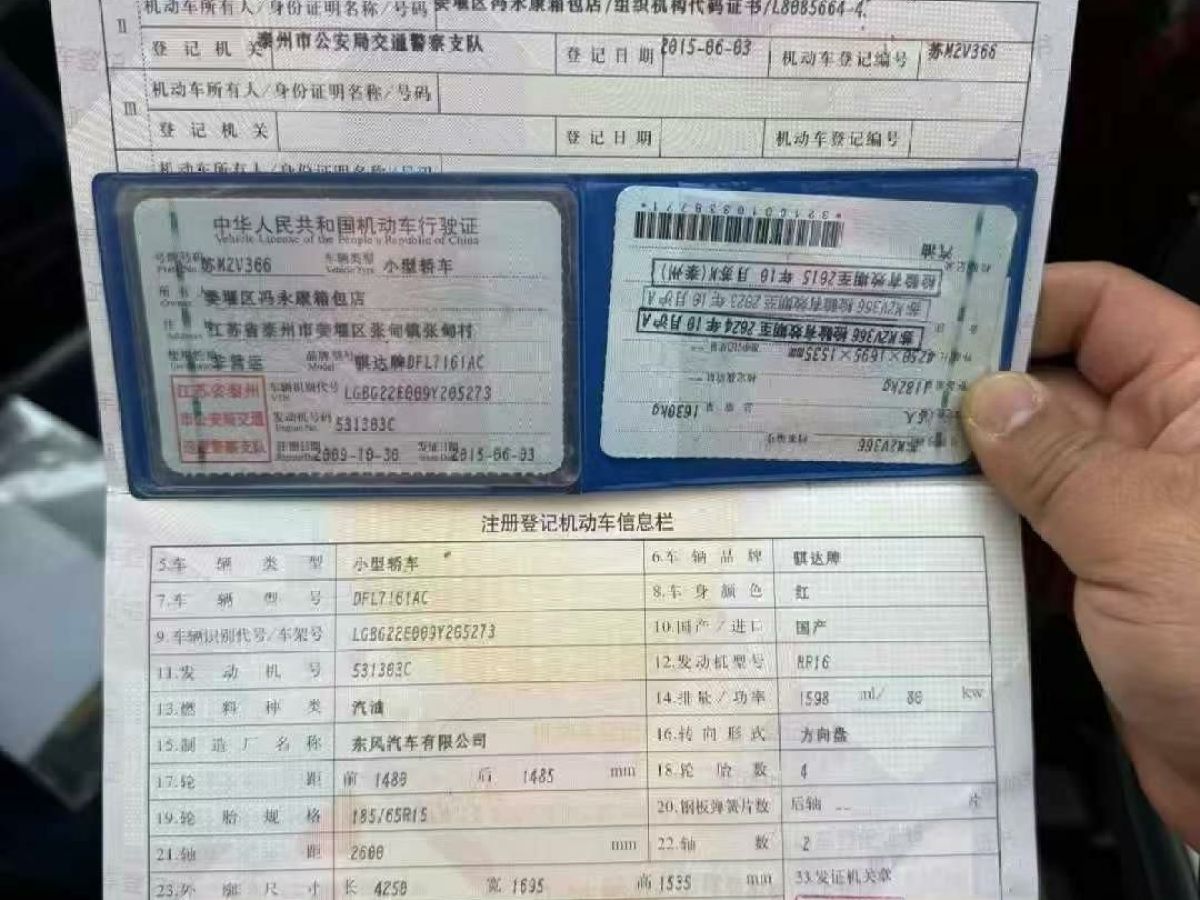 机动车所有人/身份证明名称/号码 姜堰区冯永康箱包店/组织机构代码证书/L8085664-4
II 登记机关 泰州市公安局交通警察支队 登记日期 2015-06-03 机动车登记编号 苏M2V366
机动车所有人/身份证明名称/号码
III 登记机关 登记日期 机动车登记编号
机动车所有人/身份证明名称/号码
中华人民共和国机动车行驶证
Vehicle License of the People's Republic of China
号牌号码 苏M2V366 车辆类型 小型轿车
Vehicle Type
所有人 姜堰区冯永康箱包店
Owner
住址 江苏省泰州市姜堰区张甸镇张甸村
使用性质 非营运 品牌型号 骐达牌DFL7161AC
Model
江苏省泰州市公安局交通巡逻警察支队
车辆识别代号 LGBG22E009Y205273
VIN
发动机号码 531303C
Engine No.
注册日期 2009-10-30 发证日期 2015-06-03
*3210010338771*
汽油
检验有效期至2015年10月苏M(泰州)
苏M2V366 检验有效期至2023年10月沪A
苏M2V366 检验有效期至2024年10月沪A
4250×1695×1535mm
1182kg
总质量 1630kg
苏M2V366
注册登记机动车信息栏
5.车辆类型 小型轿车 6.车辆品牌 骐达牌
7.车辆型号 DFL7161AC 8.车身颜色 红
9.车辆识别代号/车架号 LGBG22E009Y205273 10.国产/进口 国产
11.发动机号 531303C 12.发动机型号 HR16
13.燃料种类 汽油 14.排量/功率 1598 ml/ 80 kw
15.制造厂名称 东风汽车有限公司 16.转向形式 方向盘
17.轮距 前 1480 后 1485 mm 18.轮胎数 4
19.轮胎规格 185/65R15 20.钢板弹簧片数 后轴 -- 片
21.轴距 2600 mm 22.轴数 2
23.外廓尺寸 长 4250 宽 1695 高 1535 mm 33.发证机关章